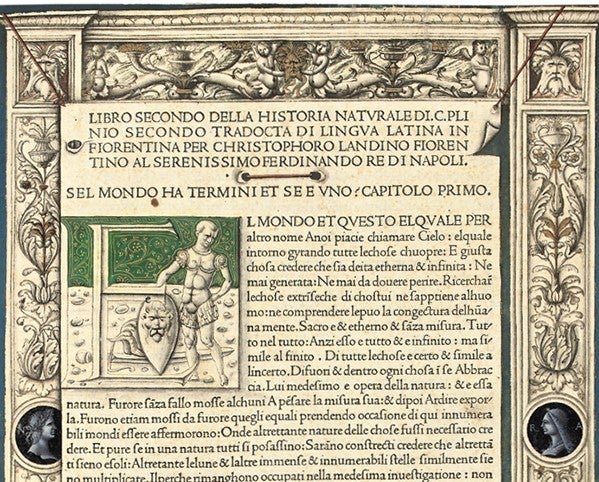 LIBRO SECONDO DELLA HISTORIA NATVRALE DI.C.PLI
NIO SECONDO TRADOCTA DI LINGVA LATINA IN
FIORENTINA PER CHRISTOPHORO LANDINO FIOREN
TINO AL SERENISSIMO FERDINANDO RE DI NAPOLI.
SEL MONDO HA TERMINI ET SE E VNO: CAPITOLO PRIMO.
EL MONDO ET QVESTO ELQVALE PER
altro nome Anoi piacie chiamare Cielo: elquale
intorno gyrando tutte lechose chuopre: E giusta
chosa credere che sia deita etherna & infinita: Ne
mai generata: Ne mai da douere perire. Ricerchař
lechose extriseche di chostui ne sapptiene alhuo
mo: ne comprendere lepuo la congectura delhūa
na mente. Sacro e & etherno & sāza misura. Tut/
to nel tutto: Anzi esso e tutto & e infinito: ma si
mile al finito. Di tutte lechose e certo & simile a
lincerto. Difuori & dentro ogni chosa i se Abbrac
cia. Lui medesimo e opera della natura: & e essa
natura. Furore sāza fallo mosse alchuni A pēsare la misura sua: & dipoi Ardire expor
la. Furono etiam mossi da furore quegli equali prendendo occasione di qui innumera
bili mondi essere affermorono: Onde altrettante nature delle chose fussi necessario cre
dere. Et pure se in una natura tutti si posassino: Sarāno constrecti credere che altrettā
ti sieno esoli: Altretante lelune & laltre immense & innumerabili stelle similmente sie
no multiplicate. Ilperche rimanghono occupati nella medesima inuestigatione: non